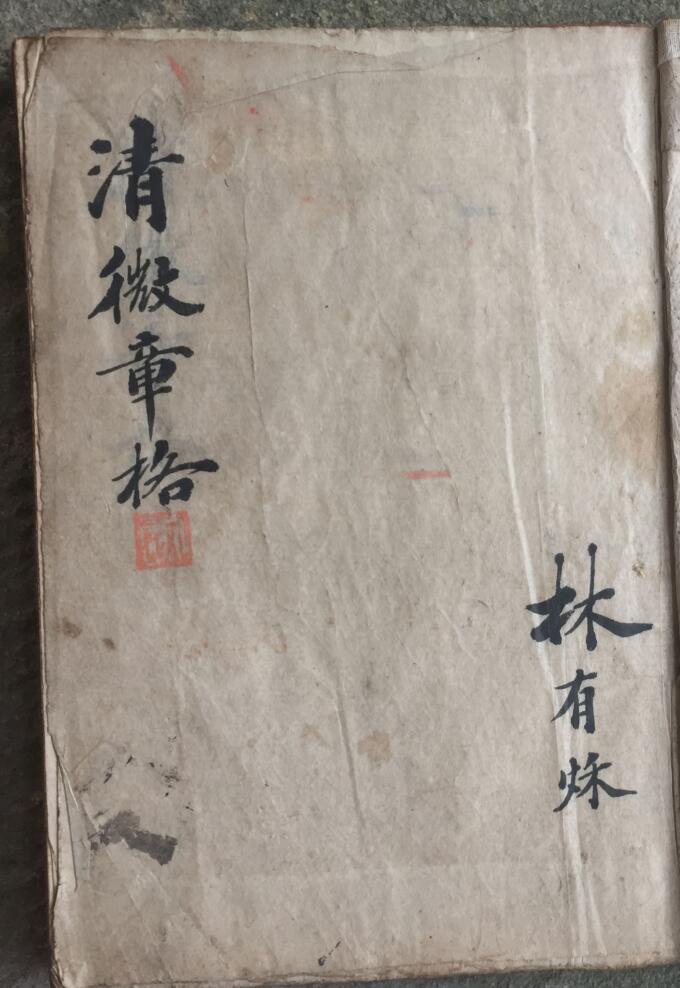 清微章格
林有秌